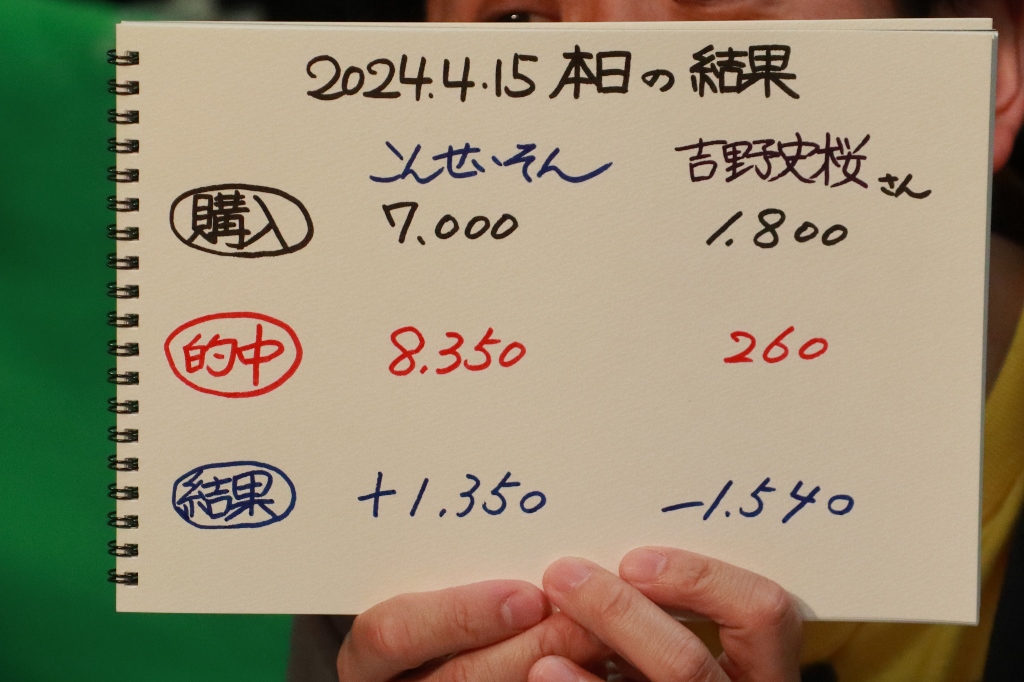 2024.4.15 本日の結果
こんせいそん 吉野史桜さん
購入 7.000 1.800
的中 8.350 260
結果 +1.350 -1.540